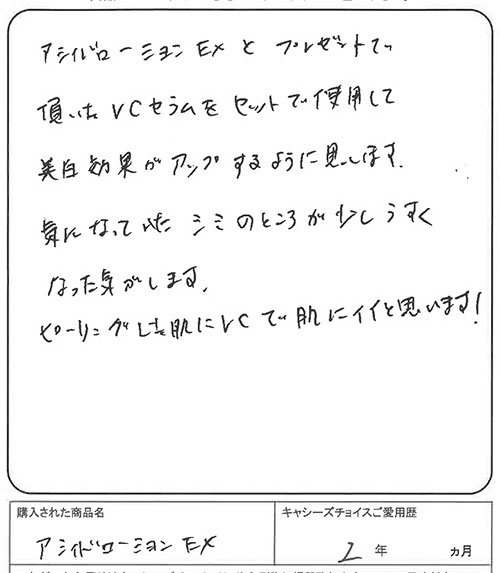 アシッドローションEXと プレゼントで
頂いた VCセラムを セットで使用して
美白効果がアップするように思います。
気になっていた シミのところが少しうすく
なった気がします。
ピーリングした肌にVCで肌にイイと思います!
購入された商品名
キャシーズチョイスご愛用歴
アシッドローションEX
2 年 ヵ月